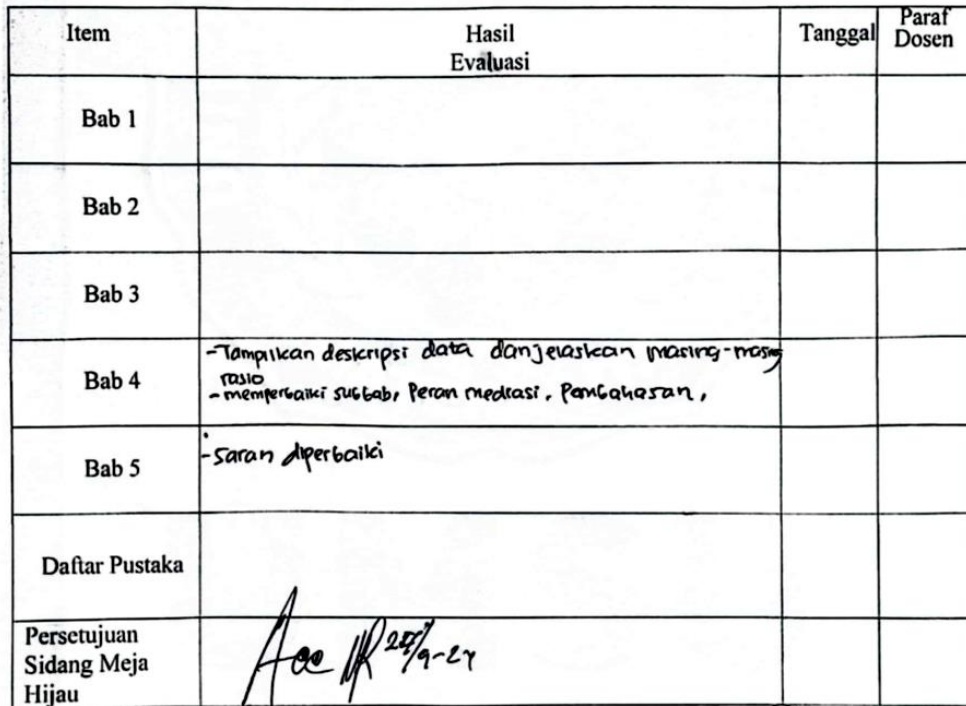 Item Hasil Tanggal Paraf
Evaluasi Dosen
Bab 1
Bab 2
Bab 3
Bab 4 -Tampilkan deskripsi data dan jelaskan masing-masing
rasio
-memperbaiki subbab, Peran mediasi, Pembahasan,
Bab 5 -Saran diperbaiki
Daftar Pustaka
Persetujuan
Sidang Meja
Hijau
Acc